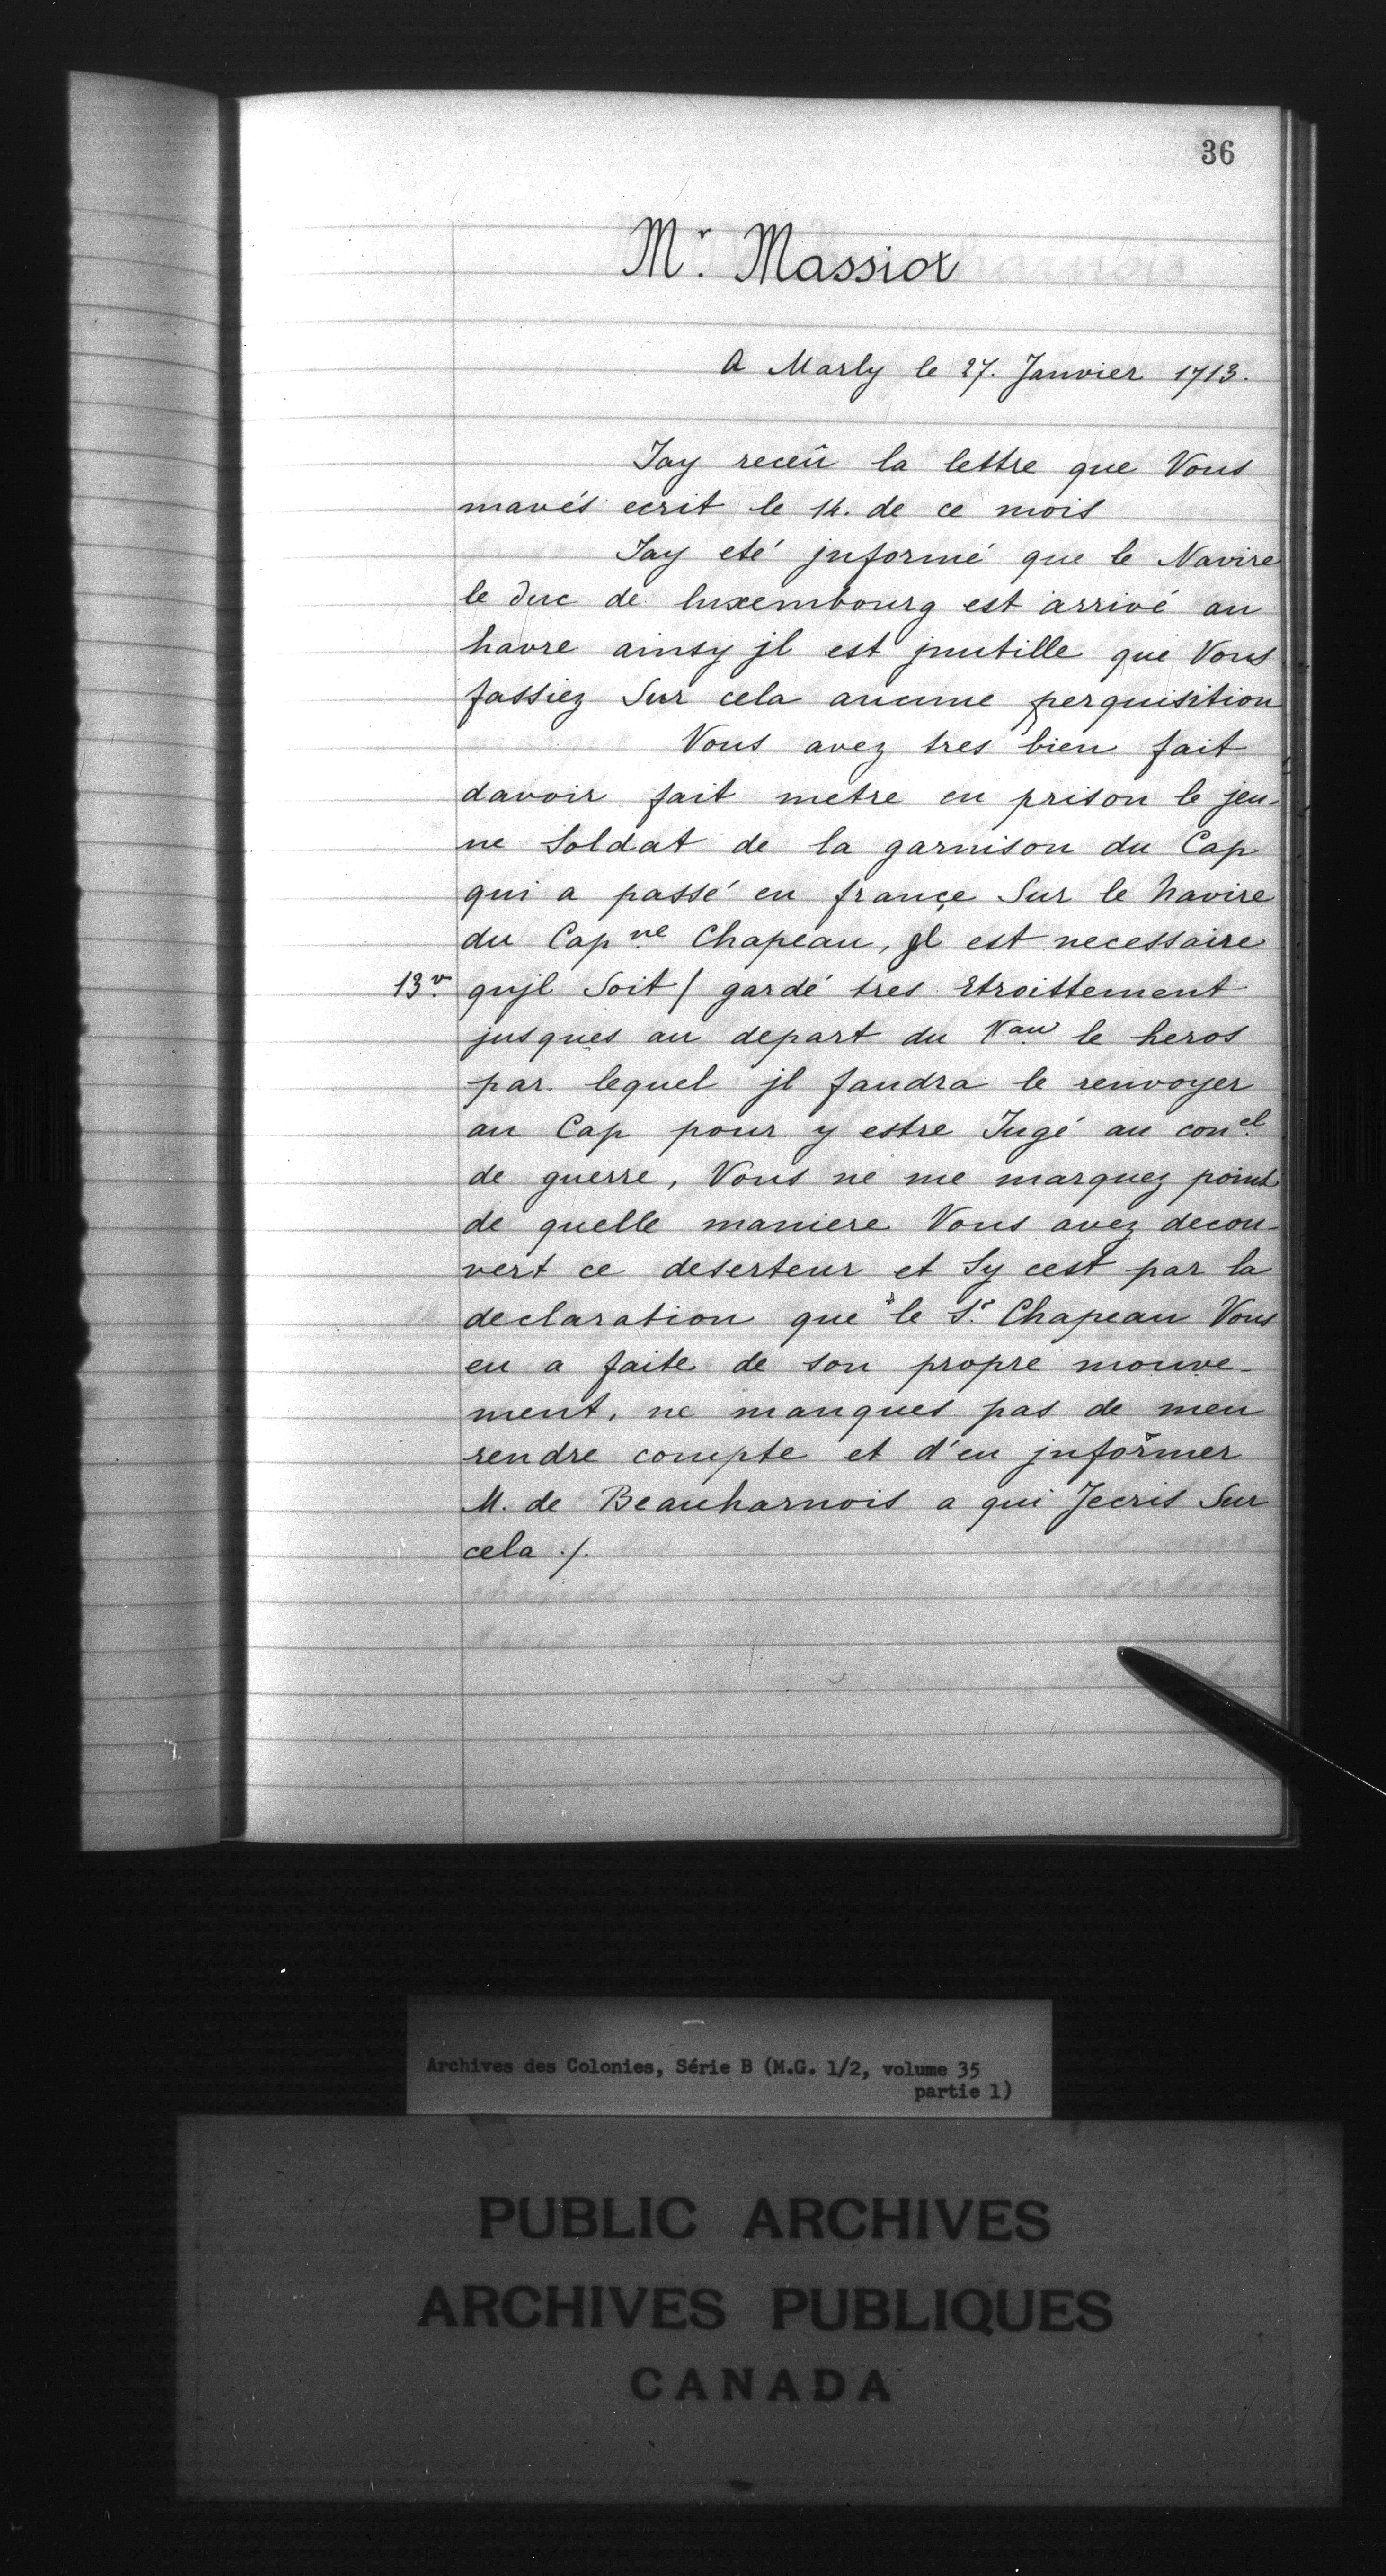 36
Mr. Massiot
A Marly le 27. Janvier 1713.
Jay receû la lettre que Vous
mavés ecrit le 14. de ce mois
Jay eté jnformé que le Navire
le duc de luxembourg est arrivé au
havre ainsy jl est jnutille que Vous
fassiez Sur cela aucune perquisition
Vous avez tres bien fait
davoir fait metre en prison le jeu-
ne Soldat de la garnison du Cap
qui a passé en françe Sur le Navire
du Cap.ne Chapeau, jl est necessaire
13v. qujl Soit / gardé tres Etroittement
jusques au depart du Vau le heros
par lequel jl faudra le renvoyer
au Cap pour y estre Jugé au conel.
de guerre, Vous ne me marquez point
de quelle maniere Vous avez decou-
vert ce deserteur et Sy cest par la
declaration que le Sr. Chapeau Vous
en a faite de son propre mouve-
ment, ne manques pas de men
rendre compte et d'en jnformer
M. de Beauharnois a qui Jecris Sur
cela ./.
Archives des Colonies, Série B (M.G. 1/2, volume 35
partie 1)
PUBLIC ARCHIVES
ARCHIVES PUBLIQUES
CANADA